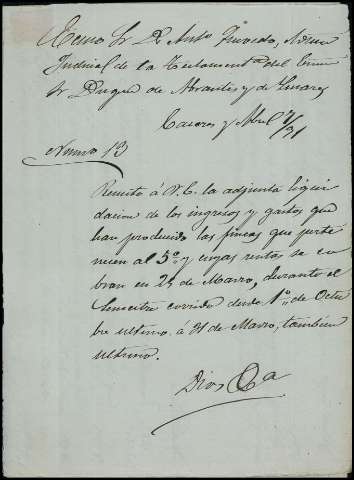 Excmo Sr D Anto Quevedo, Admor
Judicial de la Testamenta del Excmo
Sr Duque de Abrantes y de Linares
Caceres y Abril 7/91
Numo 13
Remito á V.E. la adjunta liqui
dacion de los ingresos y gastos que
han producido las fincas que perte
necen al 5º y cuyas rentas se co
bran en 25 de Marzo, durante el
semestre corrido desde 1º de Octu
bre ultimo á 31 de Marzo, tambien
ultimo.
Dios &a